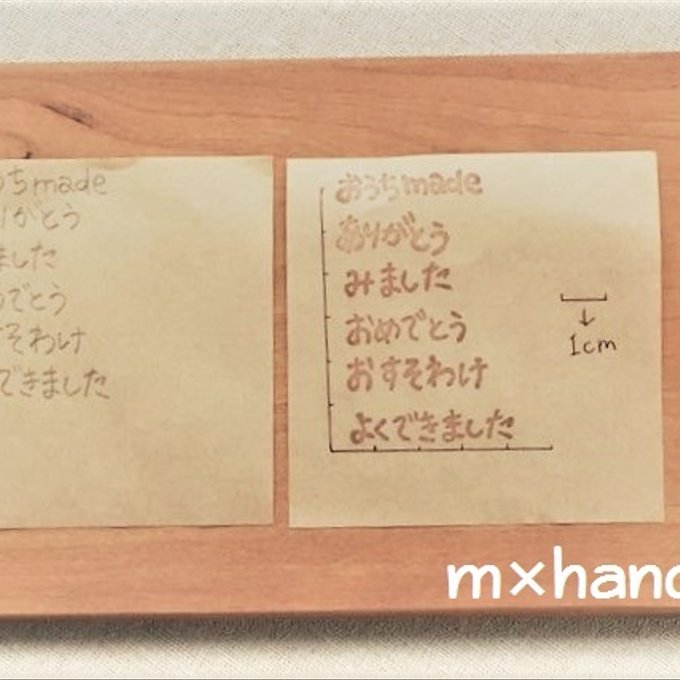 うちmade
りがとう
ました
めでとう
すそわけ
できました
おうちmade
ありがとう
みました
おめでとう
おすそわけ
よくできました
1cm
m×hand